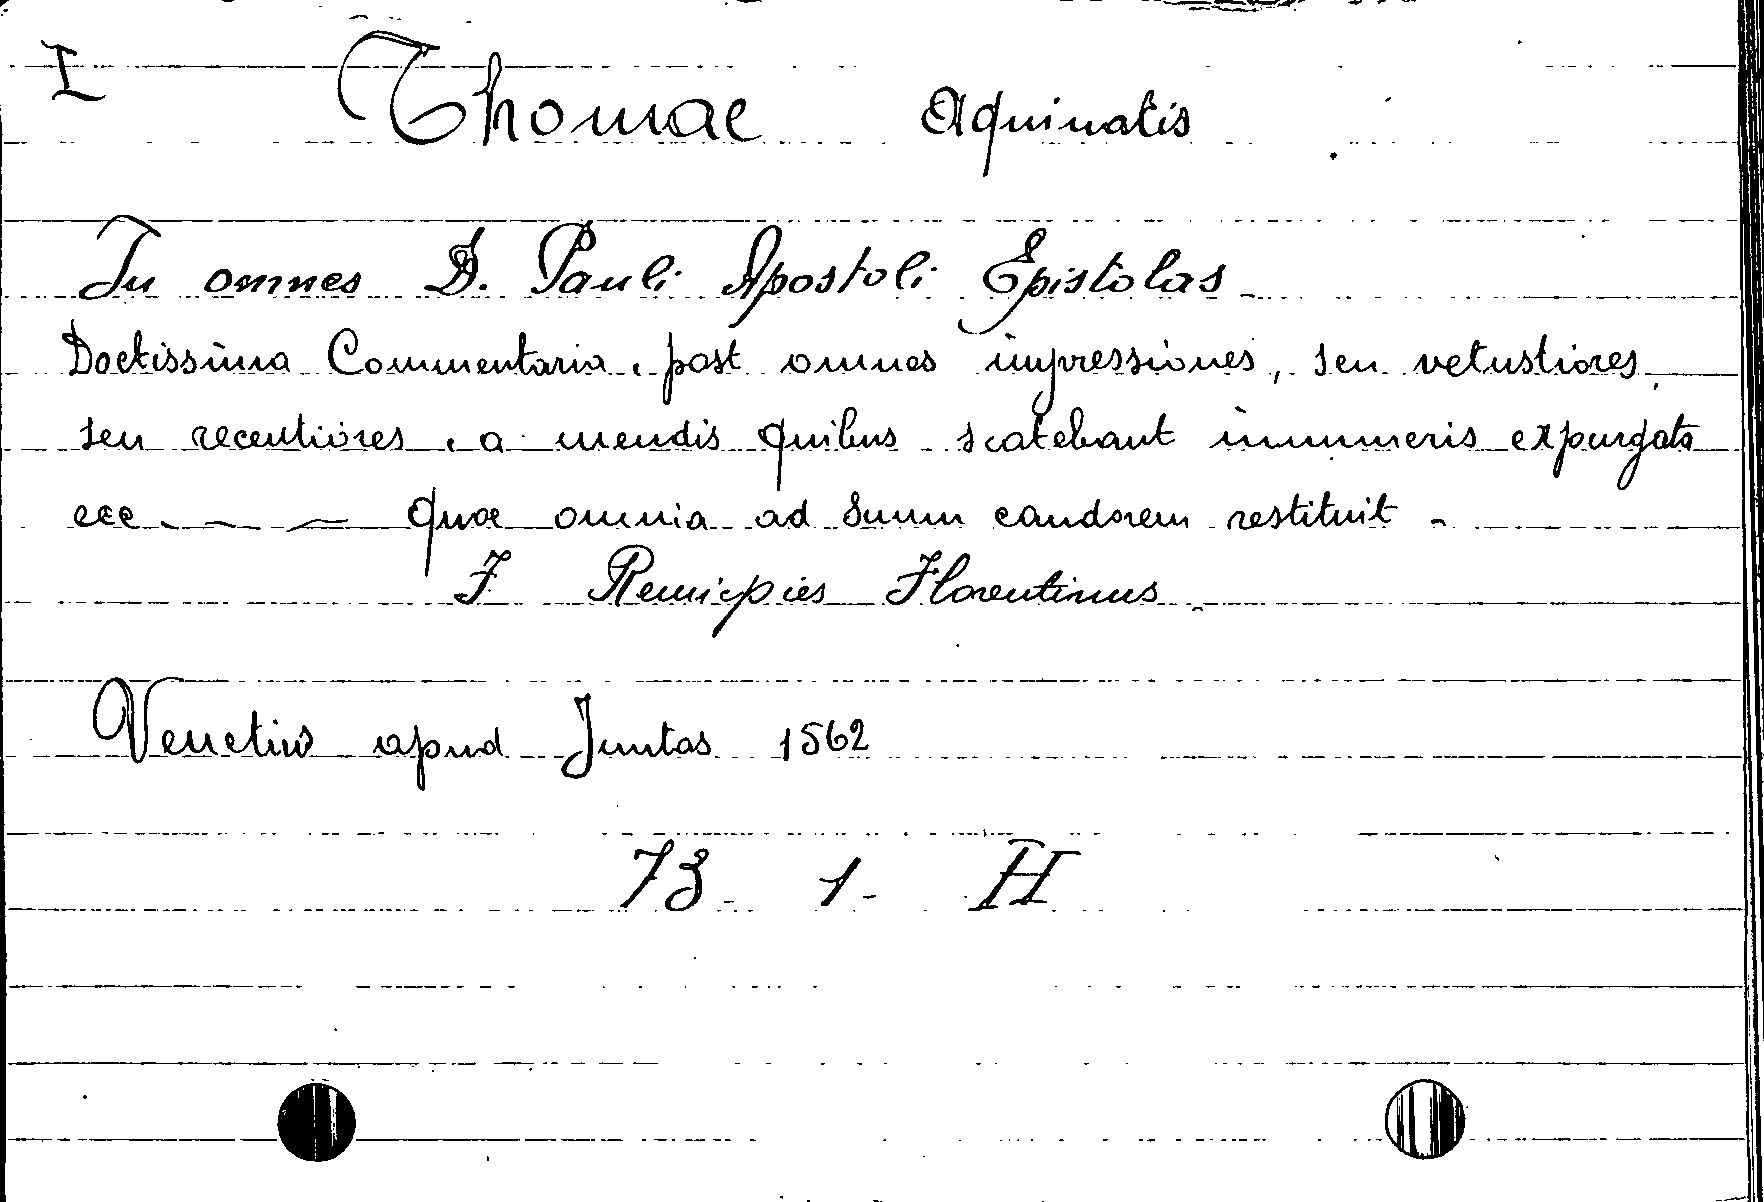 I Thomae Aquinatis
In omnes D. Pauli Apostoli Epistolas
Doctissima Commentaria, post omnes impressiones, seu vetustiores,
seu recentiores, a mendis quibus scatebant innumeris expurgata
ecc. — — quae omnia ad suum candorem restituit -
F Remigius Florentinus
Venetiis apud Juntas 1562
73 - 1 - H